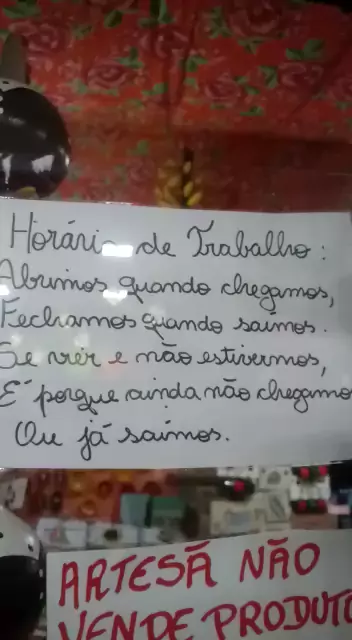 Horário de Trabalho:
Abrimos quando chegamos,
Fechamos quando saímos.
Se vier e não estivermos,
É porque ainda não chegamo
Ou já saímos.
ARTESÃ NÃO
VENDE PRODUTO